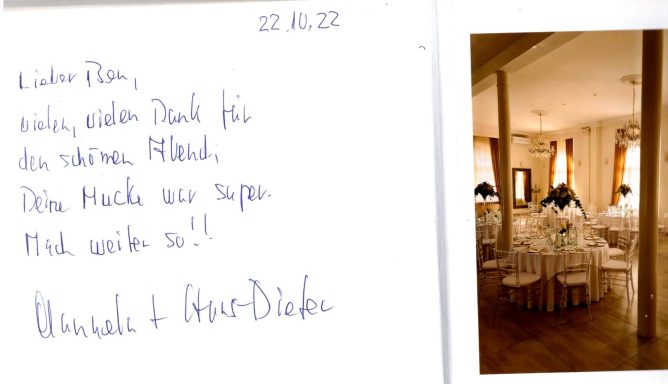 22.10.22
Lieber Ben,
vielen, vielen Dank für
den schönen Abend,
Deine Mucke war super.
Mach weiter so!!
Mannela + Hans-Dieter